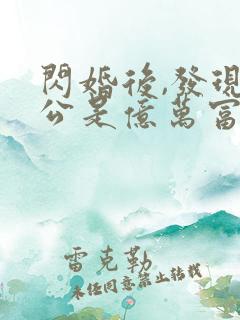 閃婚後,發現
公是億萬富
雷克勒
未經同意禁止轉載